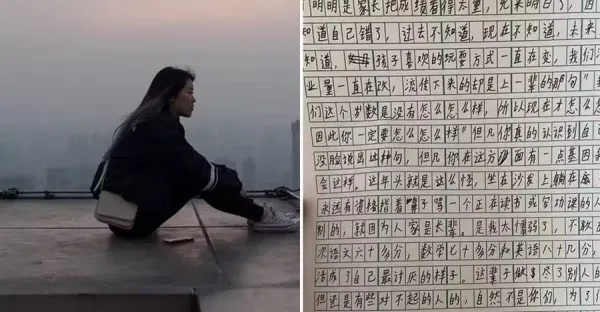 明明是家长把成绩看得太重,先来明白了,因
知道自己错了,过去不知道,现在不知道,未来
知道,孩子喜欢的玩耍方式一直在变,我们
业量一直在改,流传下来的却是上一辈的那句“
们这个岁数是没有怎么怎么样,你以现在才怎么
因此你一定要怎么怎么样”但凡你真的认识到自
没脸说出这种句,但凡你在这方面有一点基因
会这样。这年头就是这么怪,坐在沙发上躺在
永远有资格指着鼻子骂一个正在读书或写功课的人
别的,就因为人家是长辈。是我太懦弱了,不敢
次语文六十多分,数学七十多分和英语八十几分,
活成了自己最讨厌的样子。这辈子做尽了别人的
但还是有些对不起的人的,自然不是你们,为了